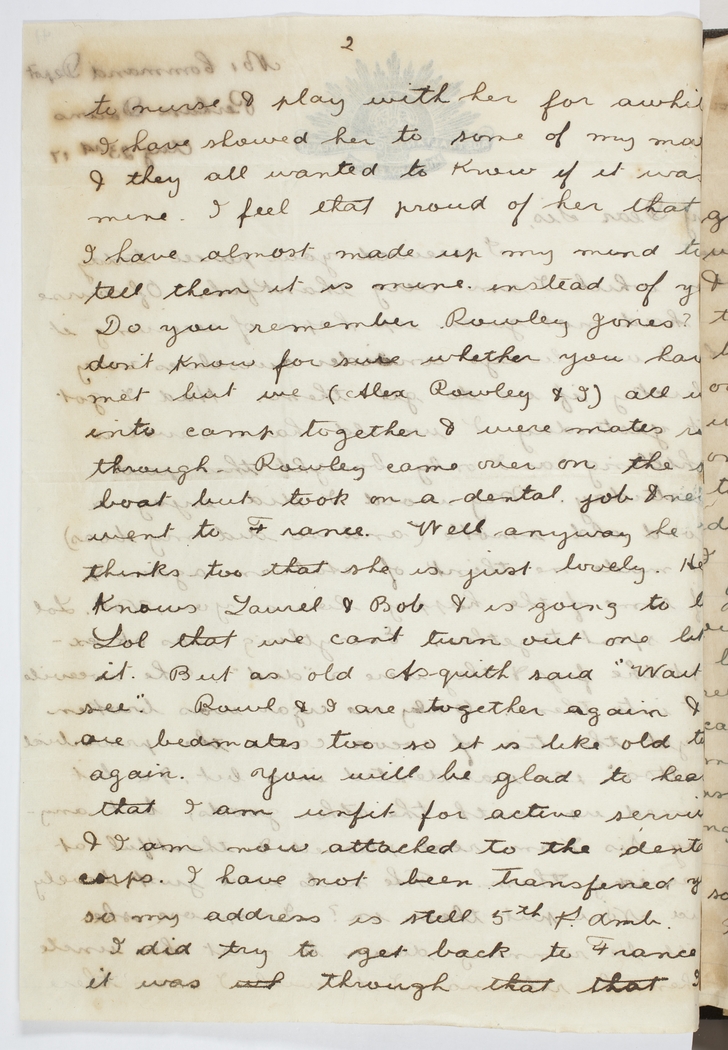 2
to nurse & play with her for awhil
I have showed her to some of my ma
& they all wanted to know if it was
mine. I feel that proud of her that
I have almost made up my mind to
tell them it is mine. instead of y
Do you remember Rowley Jones?
don't know for sure whether you hav
met but we (Alex Rowley & I) all w
into camp together & were mates
through. Rowley came over on the s
boat but took on a dental job & ne
went to France. Well anyway he
thinks too that she is just lovely. He
knows Laurel & Bob & is going to
Lol that we can't turn out one lik
it. But as old Asquith said "Wait
see". Rowl & I are together again &
are bedmates too so it is like old t
again. You will be glad to hea
that I am unfit for active servi
& I am now attached to the dent
corps. I have not been transferred y
so my address is still 5th F. Amb.
I did try to get back to France
it was through that that I